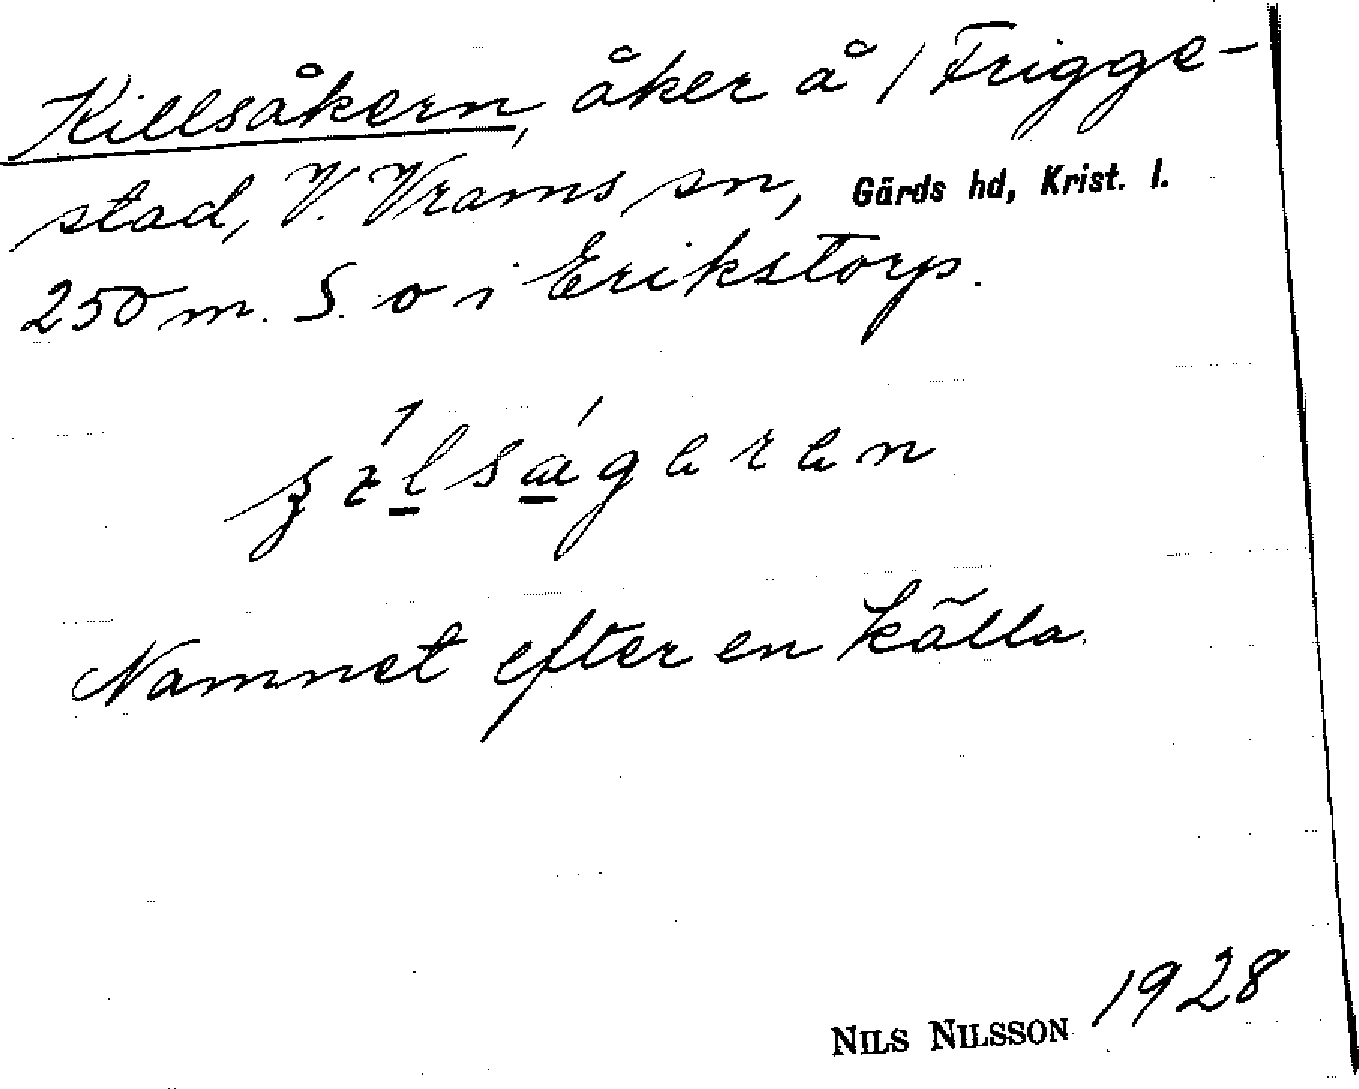 Killsåkern, åker å 1 Frigge-
stad, V. Vrams sn, Gärds hd, Krist. l.
250 m. S. o i Erikstorp.
Namnet efter en källa
NILS NILSSON 1928